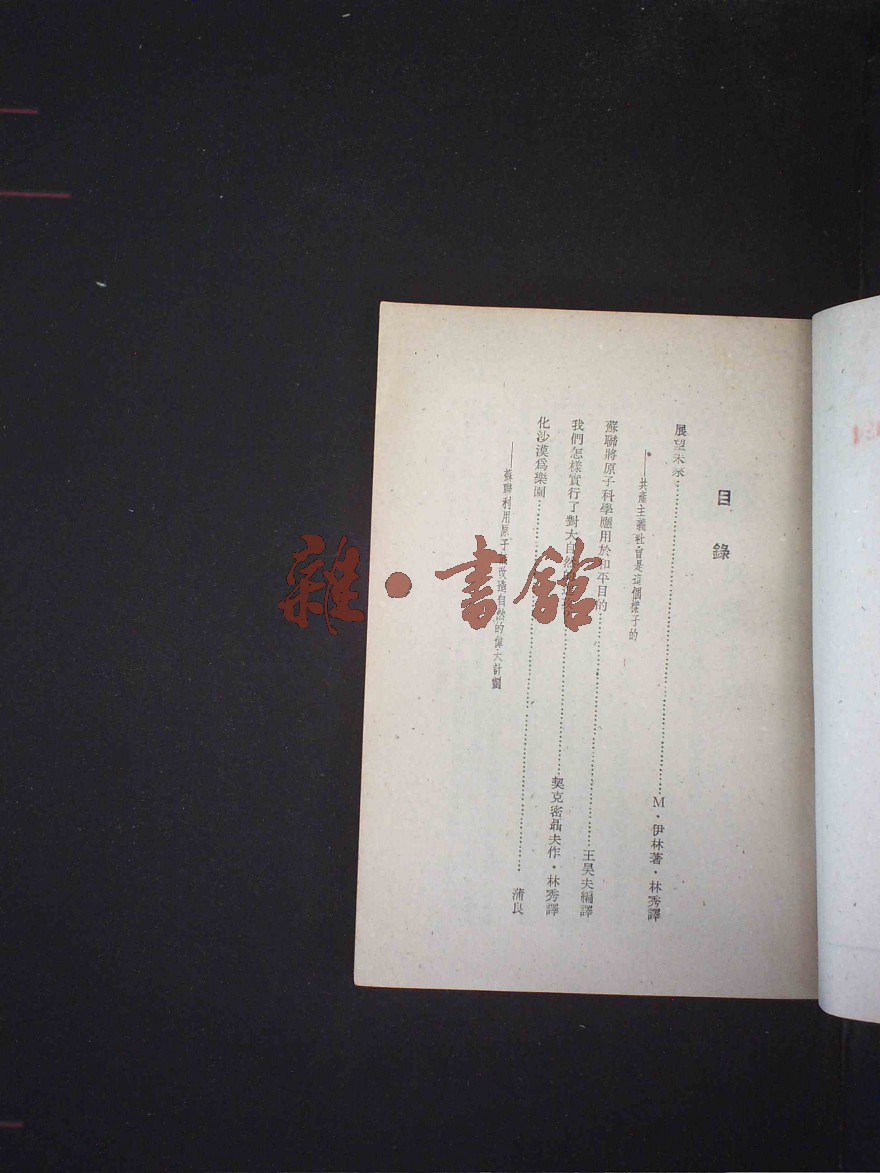 目錄
展望未來……M·伊林著·林秀譯
——共產主義社會是這個樣子的
蘇聯將原子科學應用於和平目的……王昊夫編譯
我們怎樣實行了對大自然的……契克密聶夫作·林秀譯
化沙漠爲樂園……蒲良
——蘇聯利用原子 改造自然的偉大計劃
雜·書館